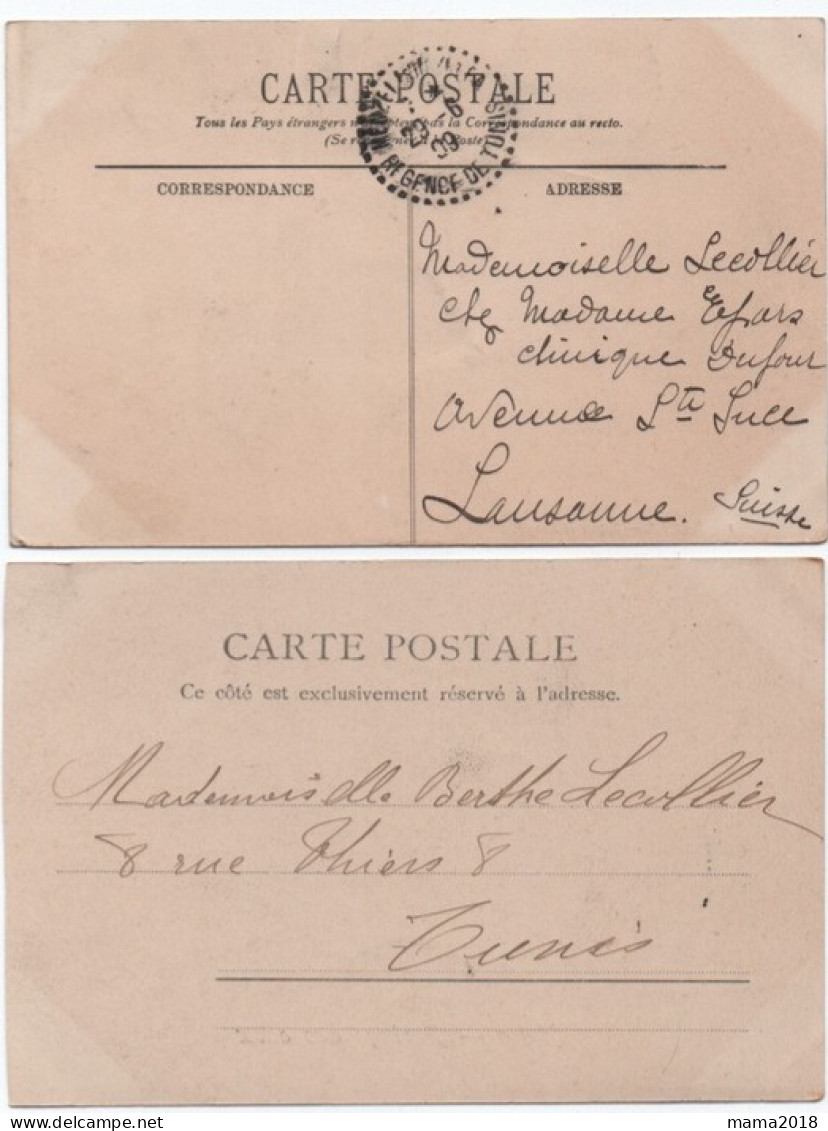 CARTE POSTALE
Tous les Pays étrangers n'acceptent pas la Correspondance au recto.
(Se renseigner à la Poste)
REGENCE DE TUNIS
23 -6
09
CORRESPONDANCE
ADRESSE
Mademoiselle Lecollier
chez Madame
clinique Dufour
Avenue Ste Luce
Lausanne. Suisse
CARTE POSTALE
Ce côté est exclusivement réservé à l'adresse.
Mademoiselle Berthe Lecollier
8 rue Thiers 8
Tunis
mama2018